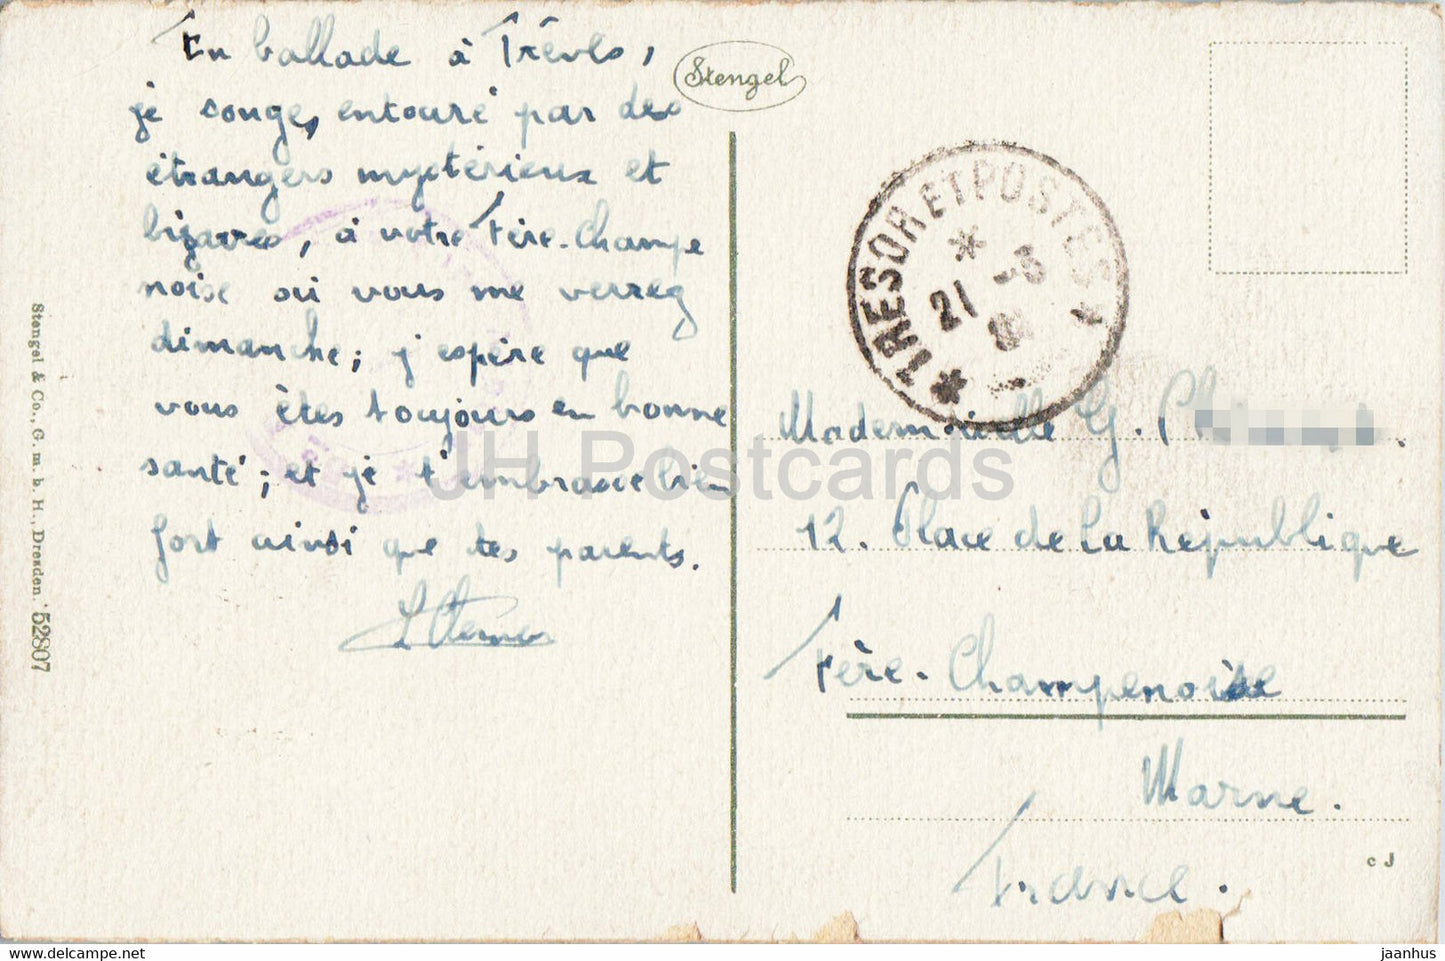 En ballade à Trèves,
je songe, entouré par des
étrangers mystérieux et
bizarres, à votre Fère-Champe
noise où vous me verrez
dimanche; j'espère que
vous êtes toujours en bonne
santé; et je t'embrasse bien
fort ainsi que tes parents.
Stengel
Stengel & Co., G. m. b. H., Dresden 52807
TRESOR ET POSTES
21 -3
Mademoiselle G.
12. Place de la République
Fère-Champenoise
Marne.
France.
c J
JH Postcards
jaanhus.hipstamp.com
jaanhus